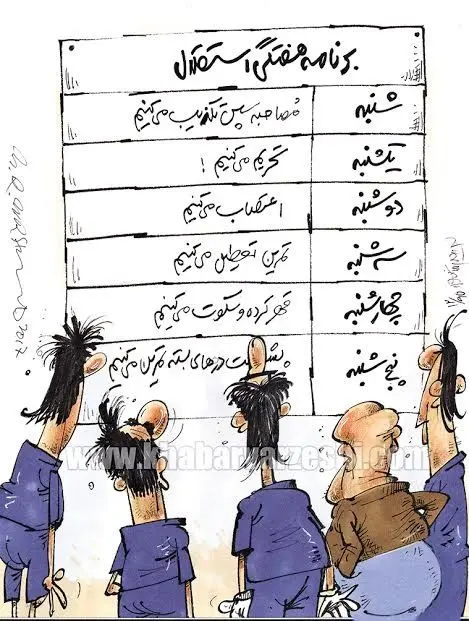 برنامه هفتگی استقلال
شنبه مصاحبه سپس تکذیب می‌کنیم
یکشنبه تحریم می‌کنیم !
دوشنبه اعتصاب می‌کنیم
سه شنبه تمرین تعطیل می‌کنیم
چهارشنبه قهر کرده و سکوت می‌کنیم
پنج شنبه پشت درهای بسته تمرین می‌کنیم
www.khabarvarzeshi.com
2017